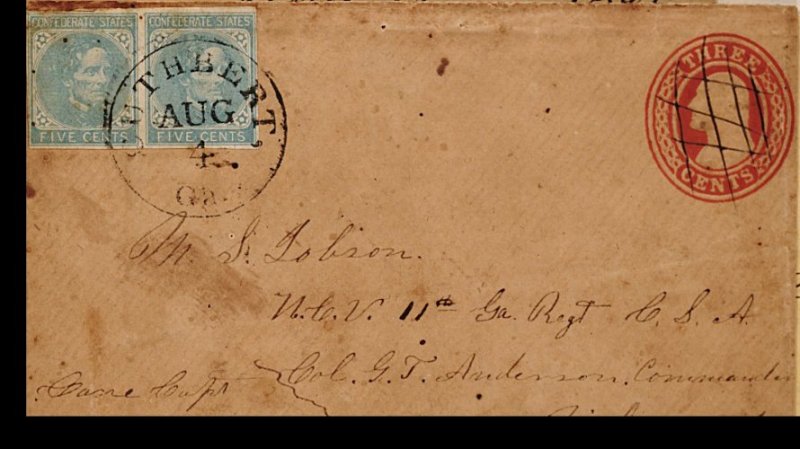 CONFEDERATE STATES CONFEDERATE STATES
FIVE CENTS FIVE CENTS
CUTHBERT.
AUG
4
Ga.
THREE
CENTS
M. S. Jobson.
11th Ga. Regt C. S. A.
Care Capt Col. G. T. Anderson, Commander